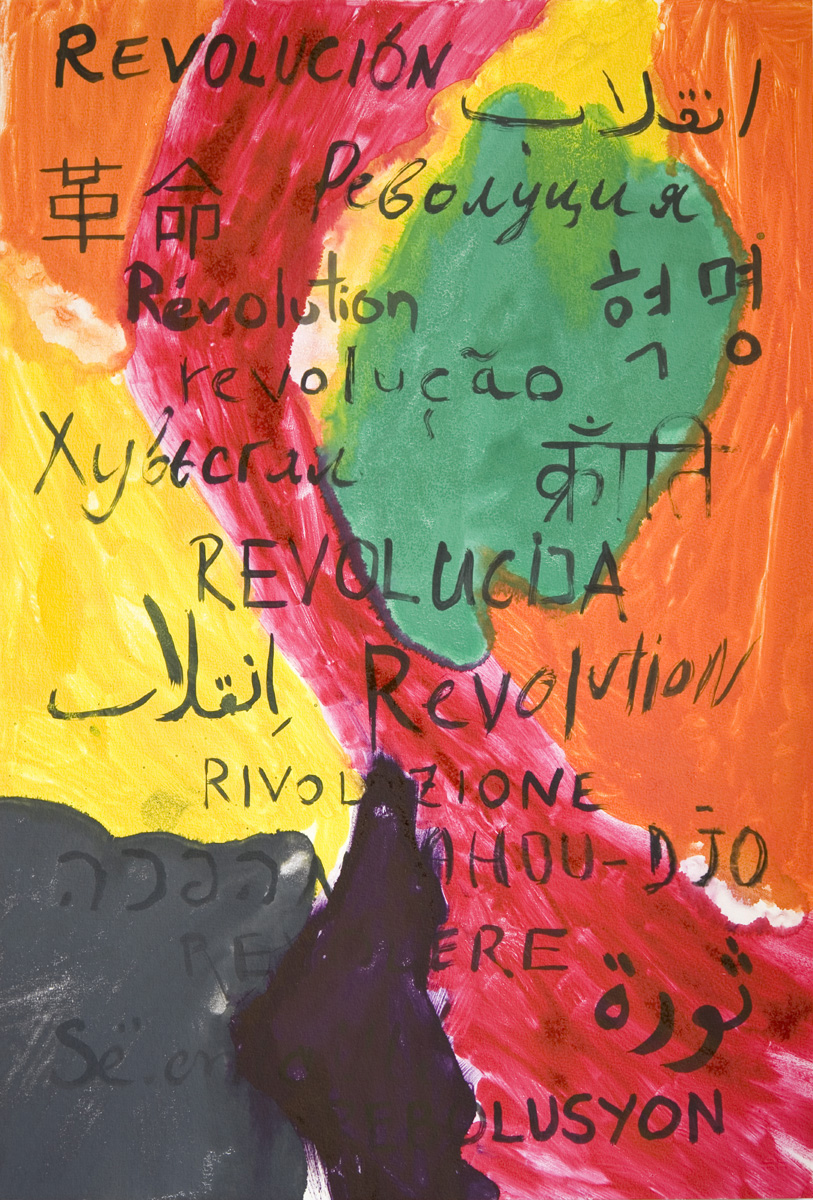 REVOLUCIÓN
انقلاب
革命 Револуция
Révolution 혁명
revolução
Хувьсгал क्राँति
REVOLUCIJA
إنقلاب Revolution
RIVOLUZIONE
מהפכה
ثورة
REBOLUSYON